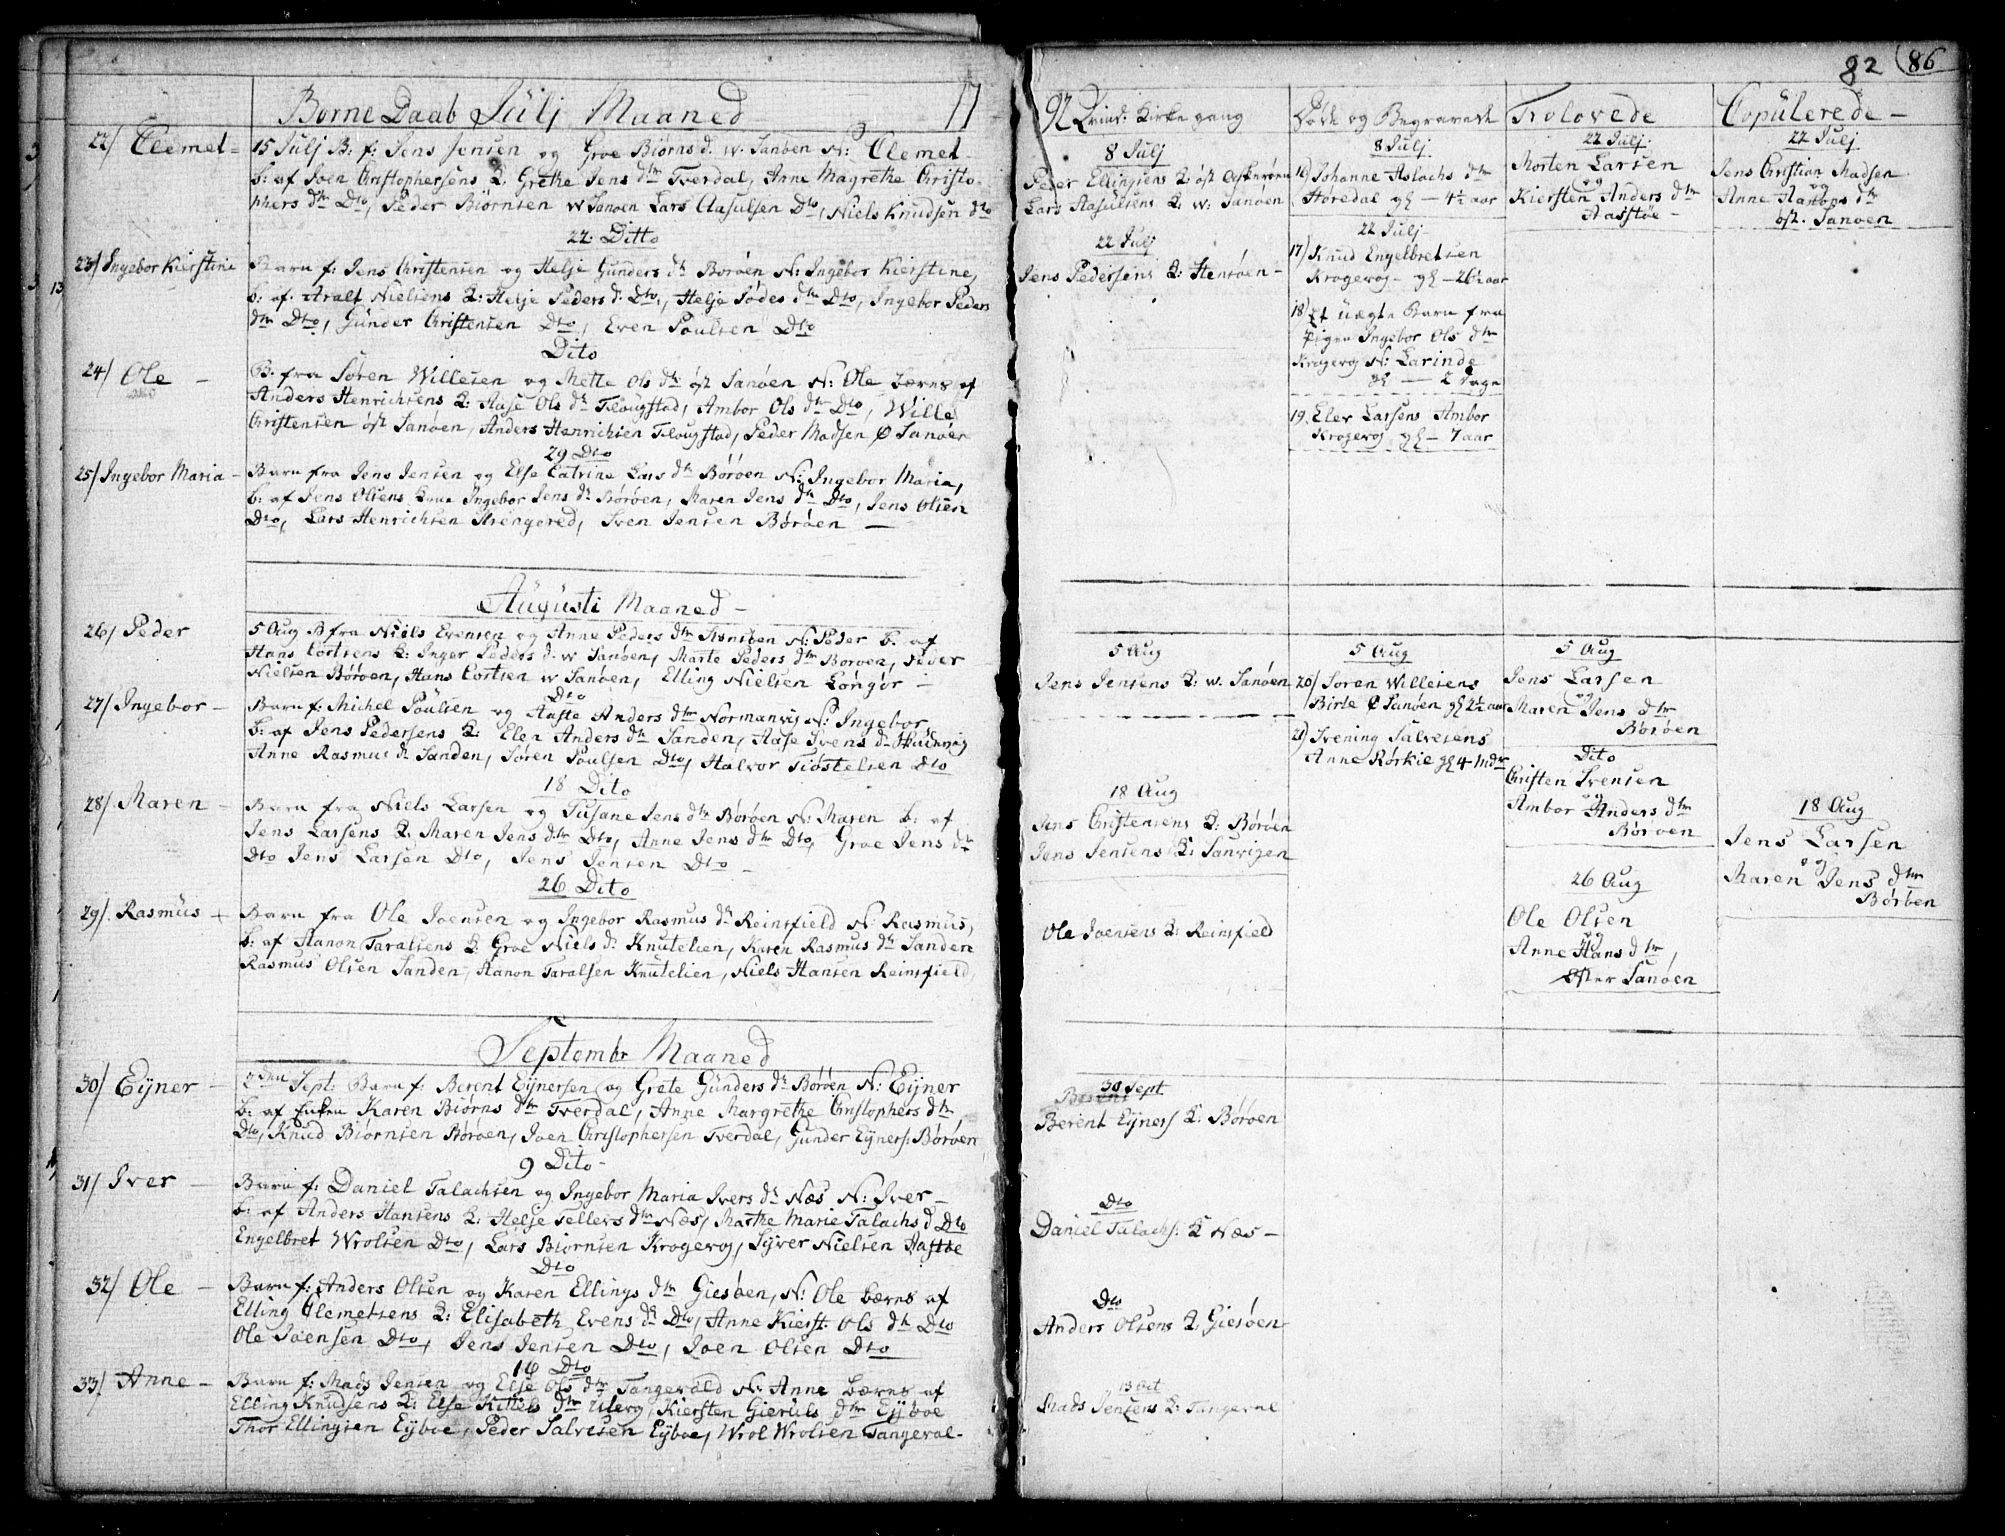 82 86
Børne Daab Julj Maaned 17
22/ Clemet - 15 Julj B. f: Jens Jensen og Groe Biørns d. w. Sanøen N: Clemet
b: af Joen Christophersens Q: Grethe Jens dtr Tverdal, Anne Magrethe Christo-
phers dtr Dto, Peder Biörnsen w Sanøen Lars Aasulsen Dto, Niels Knudsen dto
22. Ditto
23/ Ingebor Kierstine Barn f: Jens Christensen og Helje Gunders dr Borøen N: Ingebor Kierstine,
b: af. Aralf Nielsens Q: Helje Peders d. Dto, Helje Södes dtr Dto, Ingebor Peders
dtr Dto, Gunder Christensen Dto, Even Poulsen Dto
Dito
24/ Ole - B. fra Søren Willesen og Mette Ols dr öst Sanøen N: Ole bæres af
Anders Henrichsens Q: Aase Ols dr Flougstad, Ambor Ols dtr Dto, Wille
Christensen öst Sanøen, Anders Henrichsen Flougstad, Peder Madsen Ø Sanøen
29 Dto
25/ Ingebor Maria - Barn fra Jens Jensen og Else Catrine Lars dr Börøen N: Ingebor Maria,
b: af Jens Olsens Qvue Ingebor Jens dr Börøen, Maren Jens dtr Dto, Jens Olsen
Dto, Lars Henrichsen Strengered, Sven Jensen Börøen -
Augusti Maaned -
26/ Peder 5 Aug B fra Niels Evensen og Anne Peders dtr Stensøen N: Peder b: af
Hans Cortsens Q: Inger Peders d. w Sanøen, Marte Peders dtr Borøen, Peder
Nielsen Börøen, Hans Cortsen w Sanøen, Elling Nielsen Longør -
Dto
27/ Ingebor - Barn f: Michel Poulsen og Aaste Anders dtr Normanvig N: Ingebor
b: af Jens Pedersens Q: Elen Anders dtr Sanden, Aase Svens d.
Anne Rasmus dr Sanden, Søren Poulsen Dto, Halvor Tiöstelsen Dto
18 Dito
28/ Maren - Barn fra Niels Larsen og Susane Jens dtr Börøen N: Maren b: af
Jens Larsens Q. Maren Jens dtr Dto, Anne Jens dtr Dto, Groe Jens dtr
Dto Jens Larsen Dto, Jens Jensen Dto -
26 Dito
29/. Rasmus + Barn fra Ole Joensen og Ingebor Rasmus dr Reinsfield N: Rasmus,
b: af Aanon Taralsens Q: Groe Niels d. Knutelien, Karen Rasmus dr Sanden
Rasmus Olsen Sanden, Aanon Taralsen Knutelien, Niels Hansen Reinsfield
Septembr Maaned
30/ Eijner - 2den Sept: Barn f: Berent Eijnersen og Grete Gunders dr Börøen N: Eijner
b: af Enken Karen Biørns dtr Tverdal, Anne Margrethe Christophers dtr
Dto, Knud Biørnsen Börøen, Joen Christophersen Tverdal, Gunder Eijners: Börøen
9 Dito -
31/ Iver - Barn f: Daniel Talachsen og Ingebor Maria Ivers dr Næs N: Iver -
b: af Anders Hansens Q: Helje Tellevs dtr Næs, Marthe Marie Talachs d Dto
Engelbret Wrolsen Dto, Lars Biørnsen Krogevog, Syver Nielsen Aastøe
Dto
32/ Ole - Barn f: Anders Olsen og Karen Ellings dtr Giesøen, N: Ole bæres af
Elling Clemetsens Q: Elisabeth Evens dr Dto, Anne Kierst. Ols dtr Dto
Ole Joensen Dto, Jens Jensen Dto, Joen Olsen Dto
16 Dto
33/ Anne - Barn f: Mads Jensen og Else Ols dtr Tangevald N: Anne bæres af
Elling Knudsens Q: Else Kittels dtr Uberg, Kiersten Gieruls dtr Eijboe
Thor Ellingsen Eijboe, Peder Salvesen Eijboe, Wrol Wrolsen Tangeval-
92 Qvind: Kirke gang
8 Julj
Peder Ellingsens Q: öst
Lars Aasulsens Q. w. Sanøen
22 Julj
Jens Pedersens Q: Stensøen -
5 Aug
Jens Jensens Q: w. Sanøen
18 Aug
Jens Christensens Q: Börøen
Jens Jensens Q: Sanvigen
Ole Joensens Q: Reinsfield
30 Sept
Berent
Berent Eijners Q: Børøen
Dto
Daniel Talachs: Q Næs -
Dto
Anders Olsens Q. Giesøen
13 Oct
Mads Jensens Q: Tangevale
Døde og Begravede
8 Julj
16) Johanne Aslachs dtr
Storedal gl - 4½ aar
22 Julj
17) Knud Engelbretsen
Krogevog - gl - 26½ aar
18) Et uægte Barn fra
Pigen Ingebor Ols dtr
Krogevog N: Larinde
gl - 2 Dage
19. Elev Larsens Ambor
Krogevog gl - 7 aar
5 Aug
20) Søren Willesens
Birte Ø Sanøen gl 2½ aar
21) Svening Salvesens
Anne Rørkil gl 4 Mdr
Trolovede
22 Julj
Morten Larsen
og
Kiersten Anders dtr
Aastøe -
5 Aug
Jens Larsen
og
Maren Jens dtr
Børøen
Dito
Christen Svensen
og
Ambor Anders dtr
Børøen
26 Aug
Ole Olsen
og
Anne Hans dtr,
Öster Sanøen
Copulerede -
22 Julj
Jens Christian Madsen
og
Anne Aanons dtr
öst. Sanøen
18 Aug
Jens Larsen
og
Maren Jens dtr
Børøen